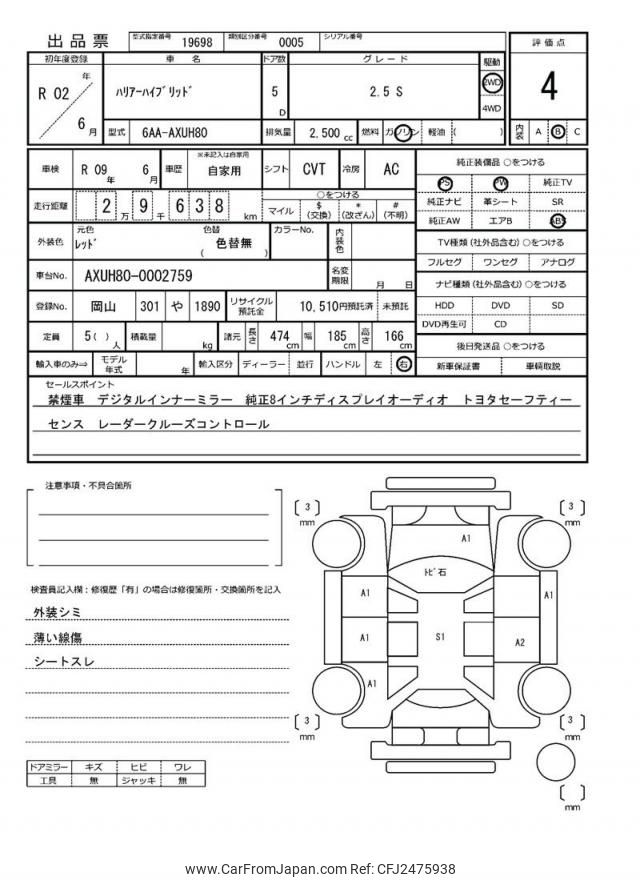 出品票 型式指定番号 19698 類別区分番号 0005 シリアル番号
評価点
4
内装 A B C
初年度登録 車名 ドア数 グレード 駆動
R 02 年 6 月
ハリアーハイブリッド 5 D 2.5 S 2WD 4WD
型式 6AA-AXUH80 排気量 2,500 cc 燃料 ガソリン 軽油 ( )
車検 R 09 年 6 月 車歴 ※未記入は自家用 自家用 シフト CVT 冷房 AC
走行距離 2 万 9 千 6 3 8 km ○をつける
マイル $(交換) *(改ざん) #(不明)
外装色 元色 レッド 色替 ( 色替無 ) カラーNo. 内装色
車台No. AXUH80-0002759 名変期限 月 日
登録No. 岡山 301 や 1890 リサイクル預託金 10,510円預託済 未預託
定員 5( )人 積載量 kg 諸元 長さ 474 cm 幅 185 cm 高さ 166 cm
輸入車のみ⇒ モデル年式 年 輸入区分 ディーラー 並行 ハンドル 左 右
純正装備品 ○をつける
PS PW 純正TV
純正ナビ 革シート SR
純正AW エアB ABS
TV種類(社外品含む)○をつける
フルセグ ワンセグ アナログ
ナビ種類(社外品含む)○をつける
HDD DVD SD
DVD再生可 CD
後日発送品 ○をつける
新車保証書 車輌取説
セールスポイント
禁煙車 デジタルインナーミラー 純正8インチディスプレイオーディオ トヨタセーフティー
センス レーダークルーズコントロール
注意事項・不具合箇所
検査員記入欄:修復歴「有」の場合は修復箇所・交換箇所を記入
外装シミ
薄い線傷
シートスレ
ドアミラー キズ ヒビ ワレ
工具 無 ジャッキ 無
[ 3 ] mm
[ 3 ] mm
A1
トビ石
A1
A1
A1
S1
A2
A1
[ 3 ] mm
[ 3 ] mm
[ ] mm
www.CarFromJapan.com Ref: CFJ2475938